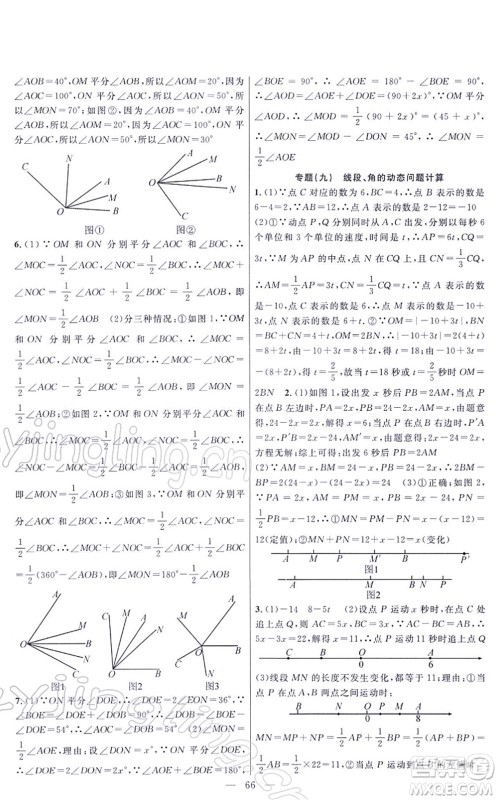 ∠AOB=40°,OM平分∠AOB,所以∠AOM=20°,因为
∠AOC=100°,ON平分∠AOC,所以∠AON=50°,所以
∠MON=70°;如图②,因为∠AOB=40°,OM平分
∠AOB,所以∠AOM=20°,因为∠AOC=100°,ON平分
∠AOC,所以∠AON=50°,所以∠MON=30°
N
C
A
M
B
O
图①
C
N
A
M
B
O
图②
6.(1)∵OM和ON分别平分∠AOC和∠BOC,
∴∠MOC=1/2∠AOC,∠NOC=1/2∠BOC,∴∠MOC+
∠NOC=1/2∠AOC+1/2∠BOC,∴∠MON=
1/2∠AOB (2)分三种情况:①如图1,∵OM和ON分
别平分∠AOC和∠BOC,∴∠MOC=1/2∠AOC,
∠NOC=1/2∠BOC,∴∠MOC-∠NOC=
1/2∠AOC-1/2∠BOC,∴∠MON=
1/2∠AOB;②如图2,∵OM和ON分别平分∠AOC和
∠BOC,∴∠MOC=1/2∠AOC,∠NOC=1/2∠BOC,
∴∠NOC-∠MOC=1/2∠BOC-1/2∠AOC,
∴∠MON=1/2∠AOB;③如图3,∵OM和ON分别平
分∠AOC和∠BOC,∴∠MOC=1/2∠AOC,∠NOC=
1/2∠BOC,∴∠MOC+∠NOC=1/2∠AOC+1/2∠BOC=
1/2(360°-∠AOB),即∠MON=180°-1/2∠AOB
图1
图2
图3
7.(1)∵ON平分∠DOE,∴∠DOE=2∠EON=36°,∵
∠BOE=∠DOE+∠DOB=90°,∴∠DOB=90°-
∠DOE=54°,∴∠AOC=∠DOB=54° (2)∠MON=
1/2∠AOE,理由:设∠EON=∠DON=x°,∴∠DOE=
2∠EON=2x°,∵∠AOE+∠BOE=180°,
∠BOE=90°,∴∠AOE=180°-∠BOE=90°,
∴∠AOD=∠AOE+∠DOE=(90+2x)°,∴∠MOD=
1/2∠AOD=1/2(90+2x)°=(45+x)°,
∴∠MON=∠MOD-∠DON=45°,∴∠MON=
1/2∠AOE
专题(九) 线段、角的动态问题计算
1.(1)∵点C对应的数为6,BC=4,∴点B表示的数为
6-4=2,∵AB=12,∴点A表示的数为2-12=-10
(2)①∵动点P,Q分别同时从A,C出发,分别以每秒6
个单位和3个单位的速度,时间是t,∴AP=6t,CQ=3t,
∵M为AP的中点,N在CQ上,且CN=1/3CQ,
∴AM=1/2AP=3t,CN=1/3CQ=t,∵点A表示的数
是-10,点C表示的数是6,∴点M表示的数是-10+
3t,点N表示的数是6+t,②∵OM=|-10+3t|,
BN=BC+CN=4+t,OM=2BN,∴|-10+3t|=2(4+t)
=8+2t,由-10+3t=8+2t,得t=18,由-10+3t
=-(8+2t),得t=2/5,故当t=18秒或t=2/5秒时OM=
2BN
2.(1)如图1,设出发x秒后PB=2AM,当点P在
点B左边时,PA=2x,PB=24-2x,AM=x,由题意
得:24-2x=2x,解得:x=6;当点P在点B右边时,P'A
=2x,P'B=2x-24,AM=x,由题意得:2x-24=2x,
方程无解;综上可得:出发6秒后PB=2AM
(2)∵AM=x,BM=24-x,PB=24-2x,∴2BM-
BP=2(24-x)-(24-2x)=24 (3)①正确;如图2,
∵PA=2x,AM=PM=x,PB=2x-24,PN=
1/2PB=x-12,∴①MN=PM-PN=x-(x-12)=
12(定值);②MN+PN=12+x-12=x(变化)
A
M
P
B
P'
图1
A
M
B
N
P
图2
3.(1)-14 8-5t (2)设点P运动x秒时,在点C处
追上点Q,则AC=5x,BC=3x,∵AC-BC=AB,∴
5x-3x=22,解得:x=11,∴点P运动11秒时追上点Q
(3)线段MN的长度不发生变化,都等于11;理由:①当
点P在点A,B两点之间运动时:
MN=MP+NP=1/2AP+1/2BP=1/2(AP+BP)=
1/2AB=1/2×22=11,②当点P运动到点B的左侧时
66